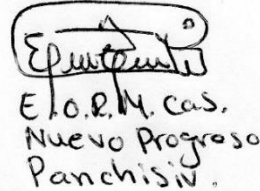 E.O.R.M. cas.
Nuevo Progreso
Panchisiv.